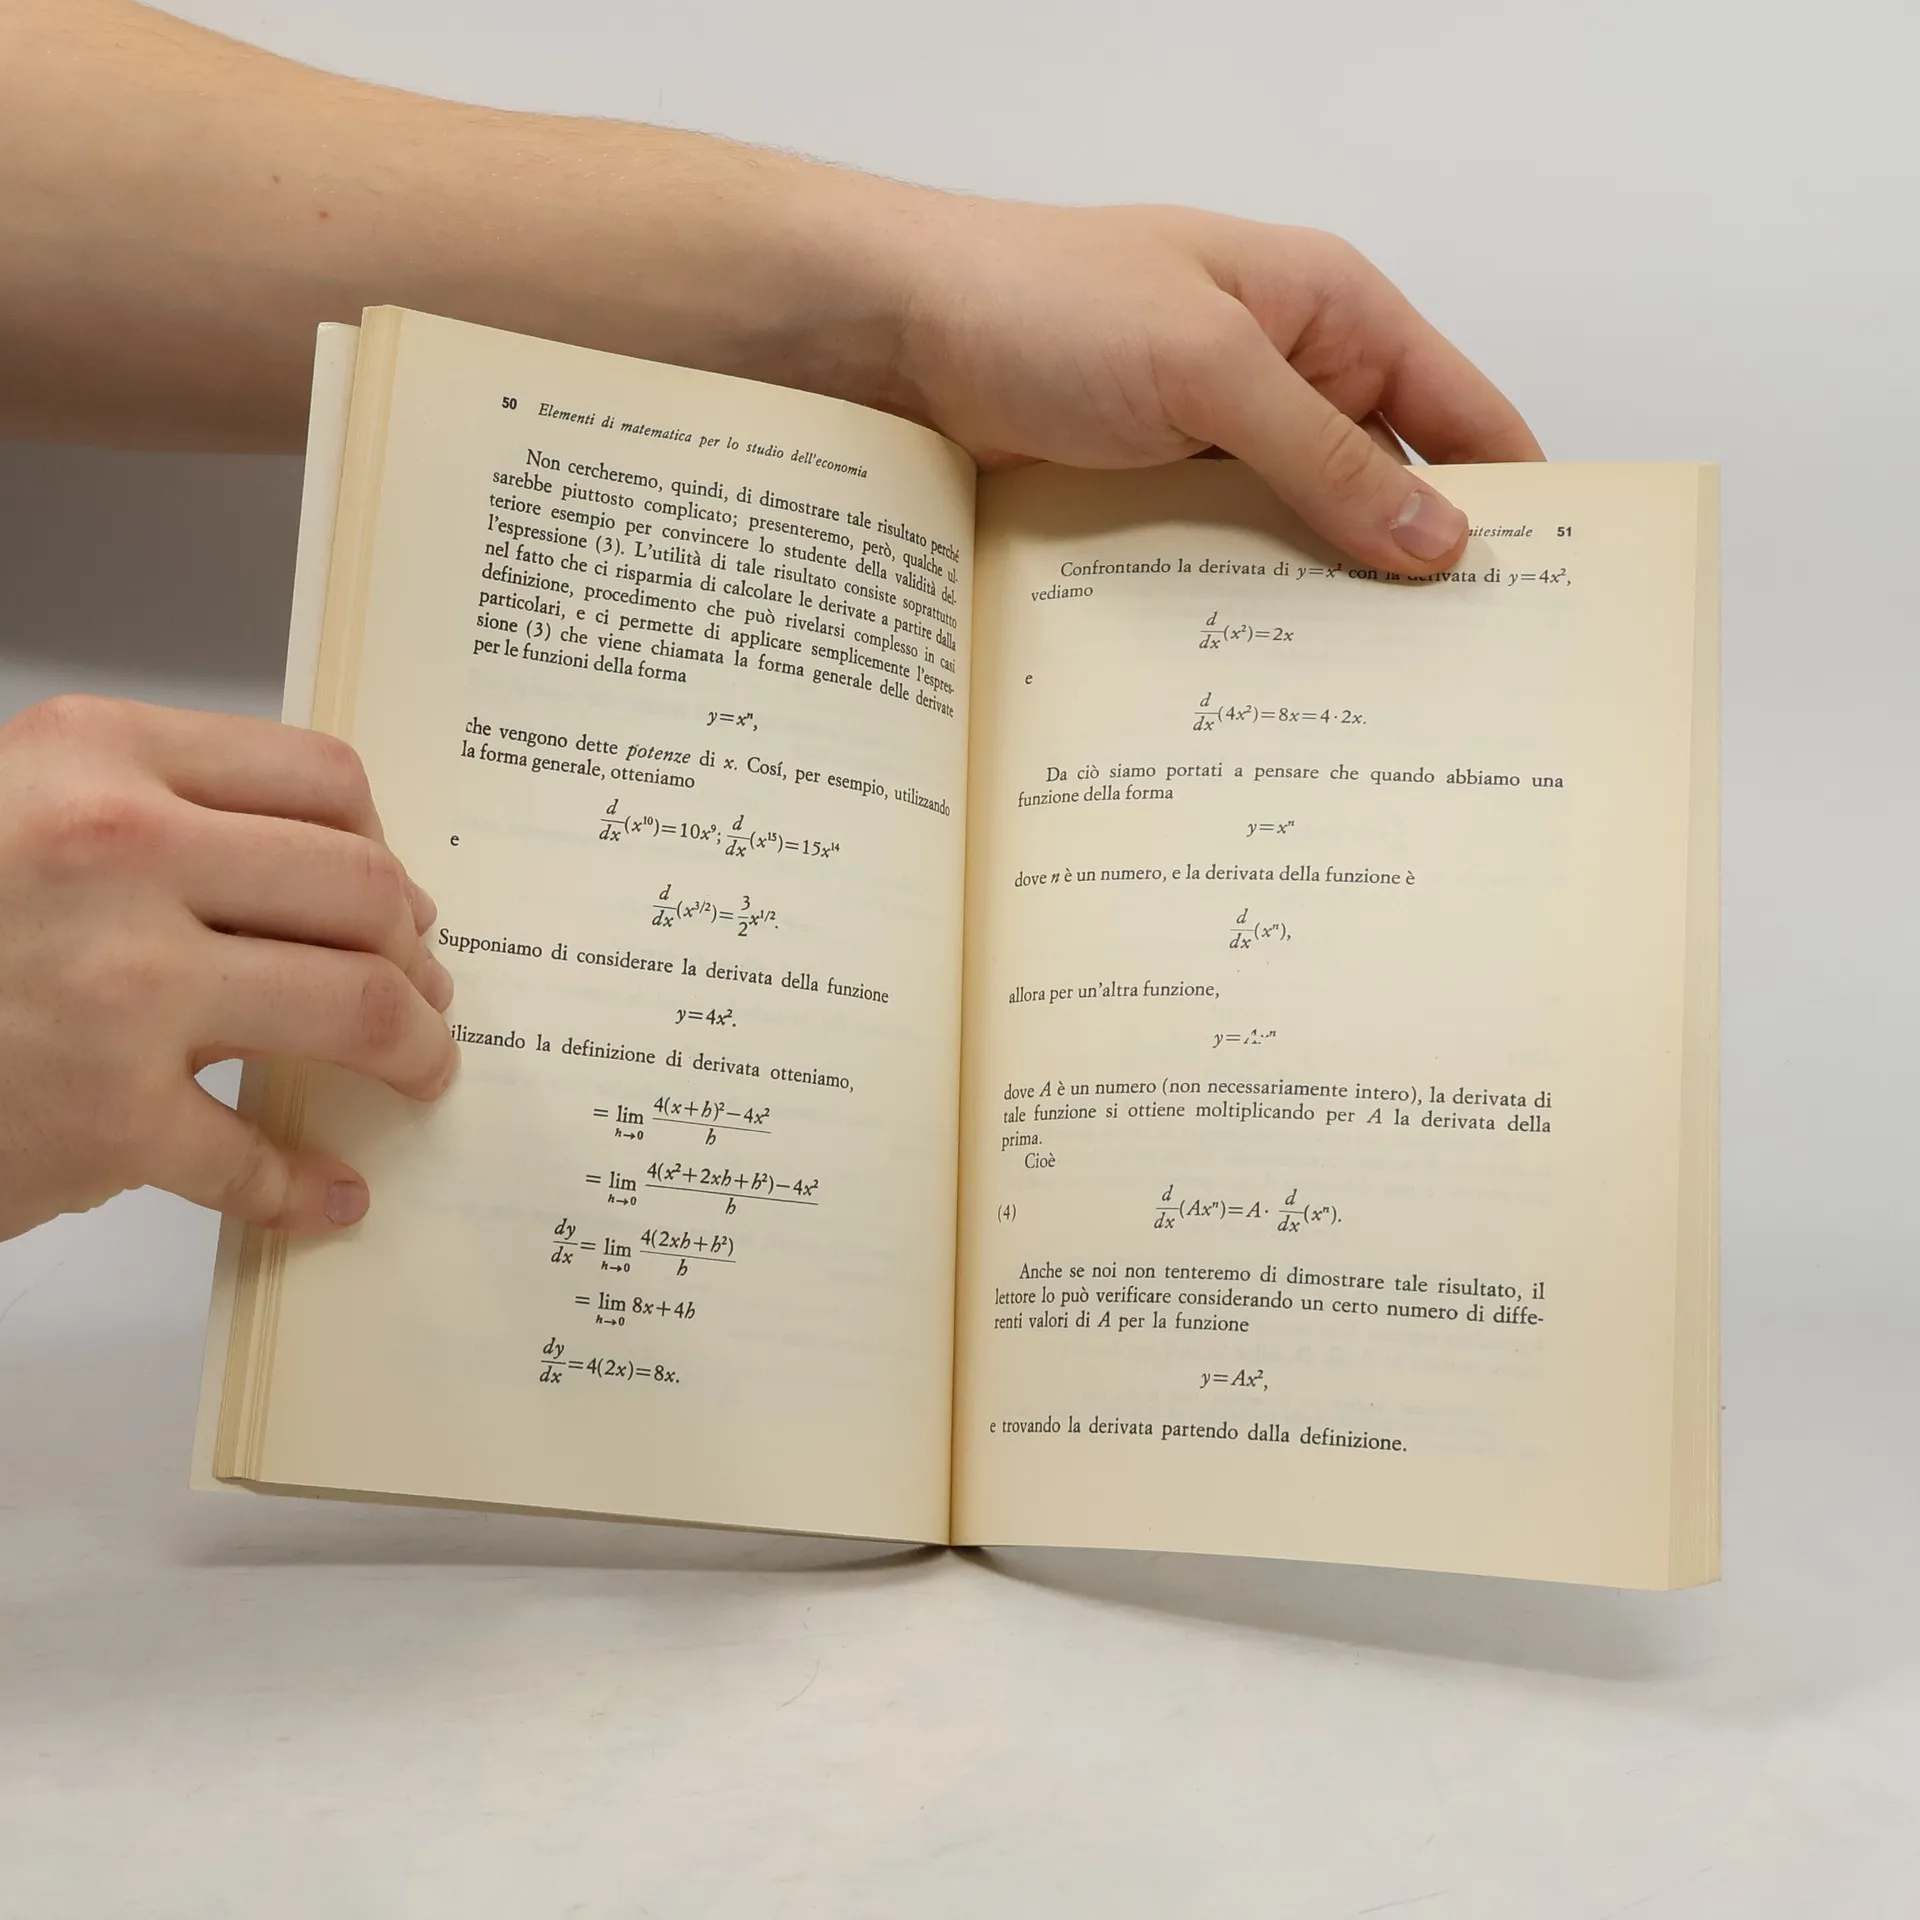 50 Elementi di matematica per lo studio dell'economia
Non cercheremo, quindi, di dimostrare tale risultato perché
sarebbe piuttosto complicato; presenteremo, però, qualche ul-
teriore esempio per convincere lo studente della validità del-
l'espressione (3). L'utilità di tale risultato consiste soprattutto
nel fatto che ci risparmia di calcolare le derivate a partire dalla
definizione, procedimento che può rivelarsi complesso in casi
particolari, e ci permette di applicare semplicemente l'espres-
sione (3) che viene chiamata la forma generale delle derivate
per le funzioni della forma
y=xⁿ,
che vengono dette potenze di x. Cosí, per esempio, utilizzando
la forma generale, otteniamo
d/dx(x¹⁰)=10x⁹; d/dx(x¹⁵)=15x¹⁴
e
d/dx(x^{3/2})=3/2x^{1/2}.
Supponiamo di considerare la derivata della funzione
y=4x².
ilizzando la definizione di derivata otteniamo,
= lim h→0 4(x+h)²−4x² / h
= lim h→0 4(x²+2xh+h²)−4x² / h
dy/dx = lim h→0 4(2xh+h²) / h
= lim h→0 8x+4h
dy/dx=4(2x)=8x.
nitesimale 51
Confrontando la derivata di y=x² con la derivata di y=4x²,
vediamo
d/dx(x²)=2x
e
d/dx(4x²)=8x=4·2x.
Da ciò siamo portati a pensare che quando abbiamo una
funzione della forma
y=xⁿ
dove n è un numero, e la derivata della funzione è
d/dx(xⁿ),
allora per un'altra funzione,
y=Axⁿ
dove A è un numero (non necessariamente intero), la derivata di
tale funzione si ottiene moltiplicando per A la derivata della
prima.
Cioè
(4) d/dx(Axⁿ)=A· d/dx(xⁿ).
Anche se noi non tenteremo di dimostrare tale risultato, il
lettore lo può verificare considerando un certo numero di diffe-
renti valori di A per la funzione
y=Ax²,
e trovando la derivata partendo dalla definizione.